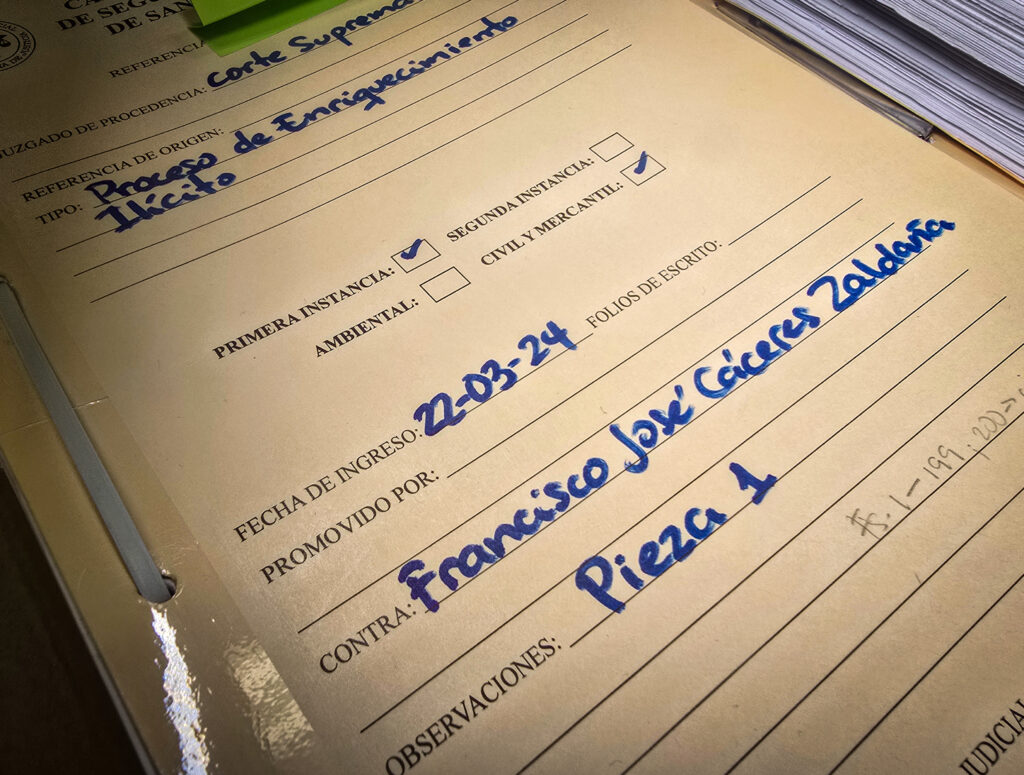 DE SEGU
DE SAN
REFERENCIA
JUZGADO DE PROCEDENCIA: Corte Suprema
REFERENCIA DE ORIGEN:
TIPO: Proceso de Enriquecimiento
Ilícito
PRIMERA INSTANCIA: ✓ SEGUNDA INSTANCIA:
AMBIENTAL: CIVIL Y MERCANTIL: ✓
FECHA DE INGRESO: 22-03-24 FOLIOS DE ESCRITO:
PROMOVIDO POR:
CONTRA: Francisco José Cáceres Zaldaña
Pieza 1
OBSERVACIONES:
fs. 1-199; 200
JUDICIAL